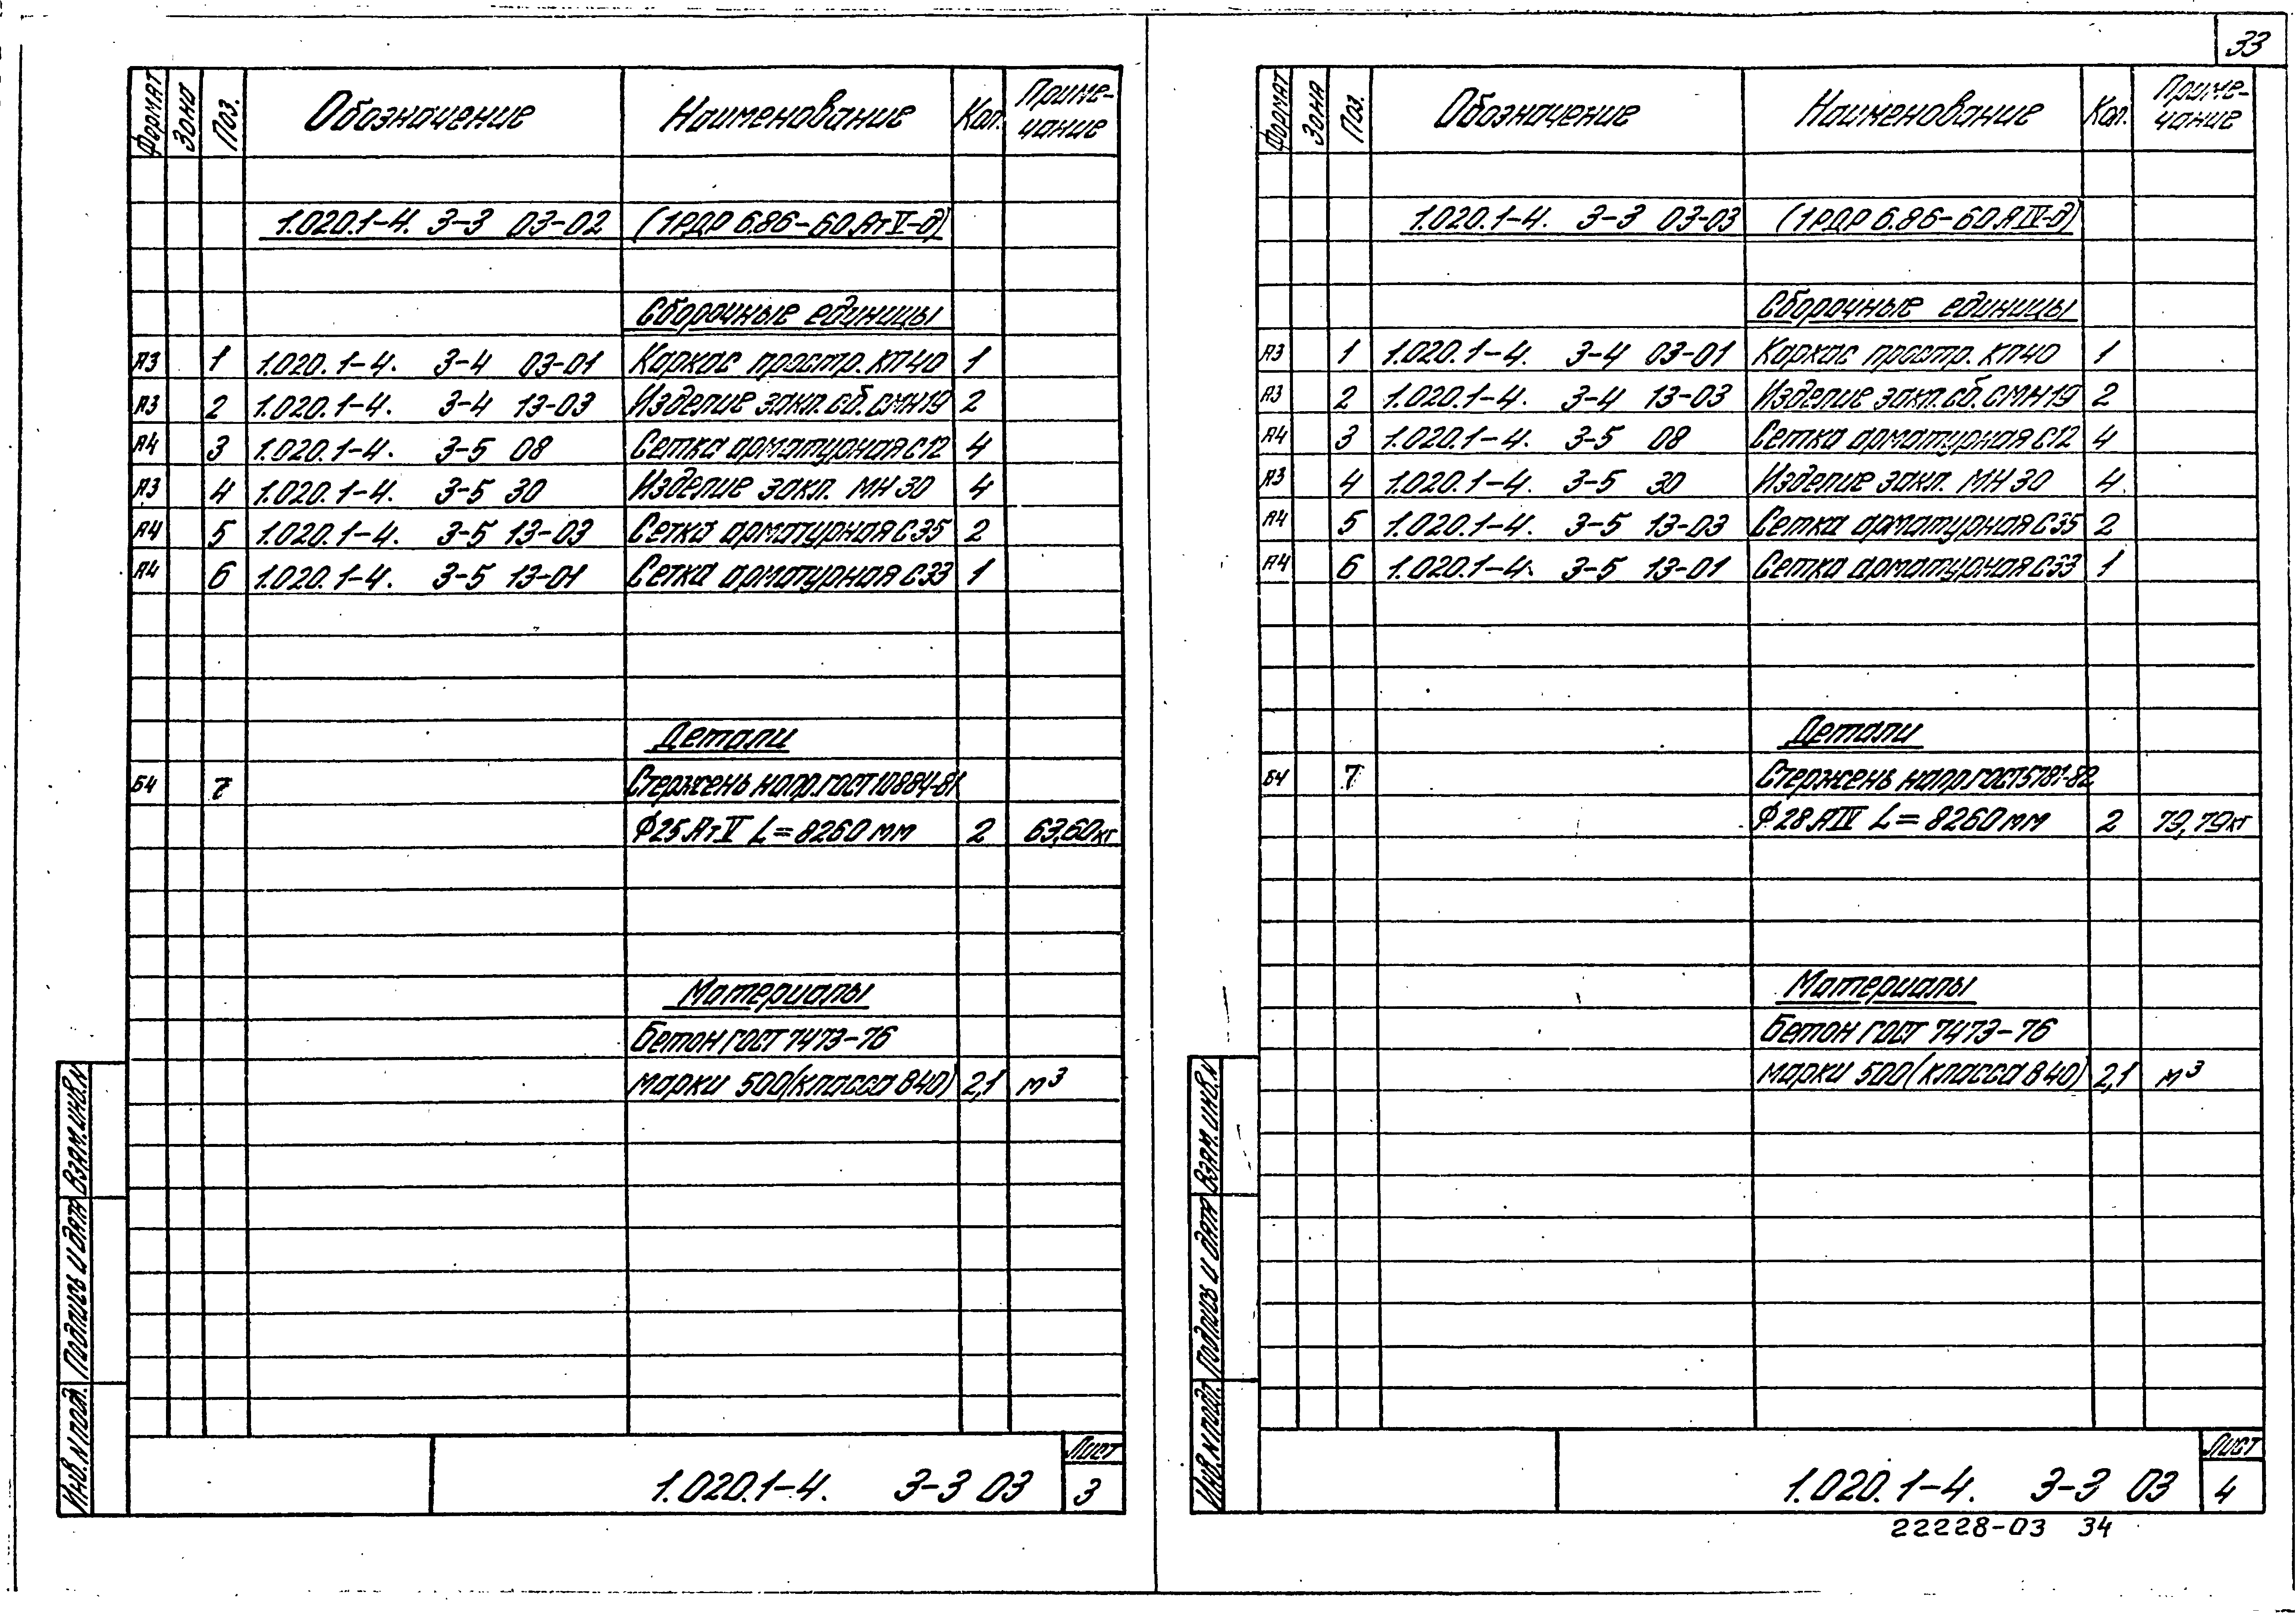 33
Формат Зона Поз. Обозначение Наименование Кол. Приме-
чание
1.020.1-4. 3-3 03-02 (1РДР 6.86-60АтV-д)
Сборочные единицы
А3 1 1.020.1-4. 3-4 03-01 Каркас простр. КП40 1
А3 2 1.020.1-4. 3-4 13-03 Изделие закл. сб. СМН19 2
А4 3 1.020.1-4. 3-5 08 Сетка арматурная С12 4
А3 4 1.020.1-4. 3-5 30 Изделие закл. МН30 4
А4 5 1.020.1-4. 3-5 13-03 Сетка арматурная С35 2
А4 6 1.020.1-4. 3-5 13-01 Сетка арматурная С33 1
Детали
Б4 7 Стержень напр. ГОСТ 10884-81
Ф25АтV L=8260мм 2 63,60кг
Материалы
Бетон ГОСТ 7473-76
марки 500(класса В40) 2,1 м³
Инв. N подл. Подпись и дата Взам. инв. N
1.020.1-4. 3-3 03
Лист
3
Формат Зона Поз. Обозначение Наименование Кол. Приме-
чание
1.020.1-4. 3-3 03-03 (1РДР 6.86-60АIV-д)
Сборочные единицы
А3 1 1.020.1-4. 3-4 03-01 Каркас простр. КП40 1
А3 2 1.020.1-4. 3-4 13-03 Изделие закл. сб. СМН19 2
А4 3 1.020.1-4. 3-5 08 Сетка арматурная С12 4
А3 4 1.020.1-4. 3-5 30 Изделие закл. МН30 4
А4 5 1.020.1-4. 3-5 13-03 Сетка арматурная С35 2
А4 6 1.020.1-4. 3-5 13-01 Сетка арматурная С33 1
Детали
Б4 7 Стержень напр. ГОСТ 5781-82
Ф28АIV L=8260мм 2 79,79кг
Материалы
Бетон ГОСТ 7473-76
марки 500(класса В40) 2,1 м³
Инв. N подл. Подпись и дата Взам. инв. N
1.020.1-4. 3-3 03
Лист
4
22228-03 34